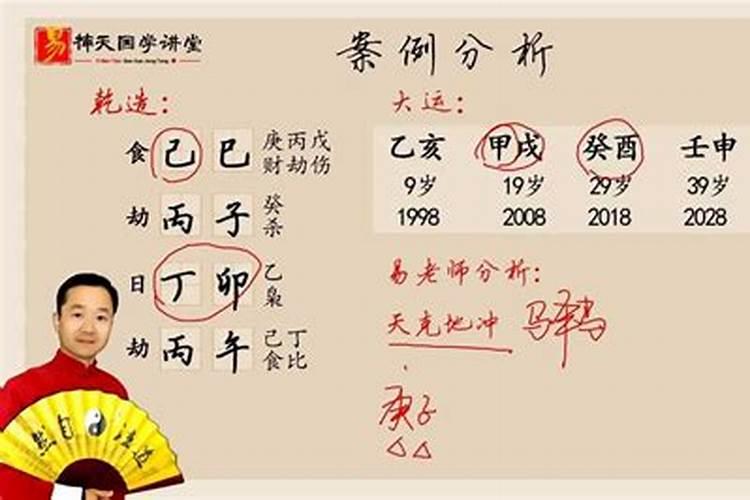 易 神天国学讲堂
案例分析
乾造：
食 己 巳 庚丙戊
财劫伤
劫 丙 子 癸
杀
日 丁 卯 乙
枭
劫 丙 午 己丁
食比
大运：
乙亥 甲戌 癸酉 壬申
9岁 19岁 29岁 39岁
1998 2008 2018 2028
易老师分析：
天克地冲
庚子
然自法道